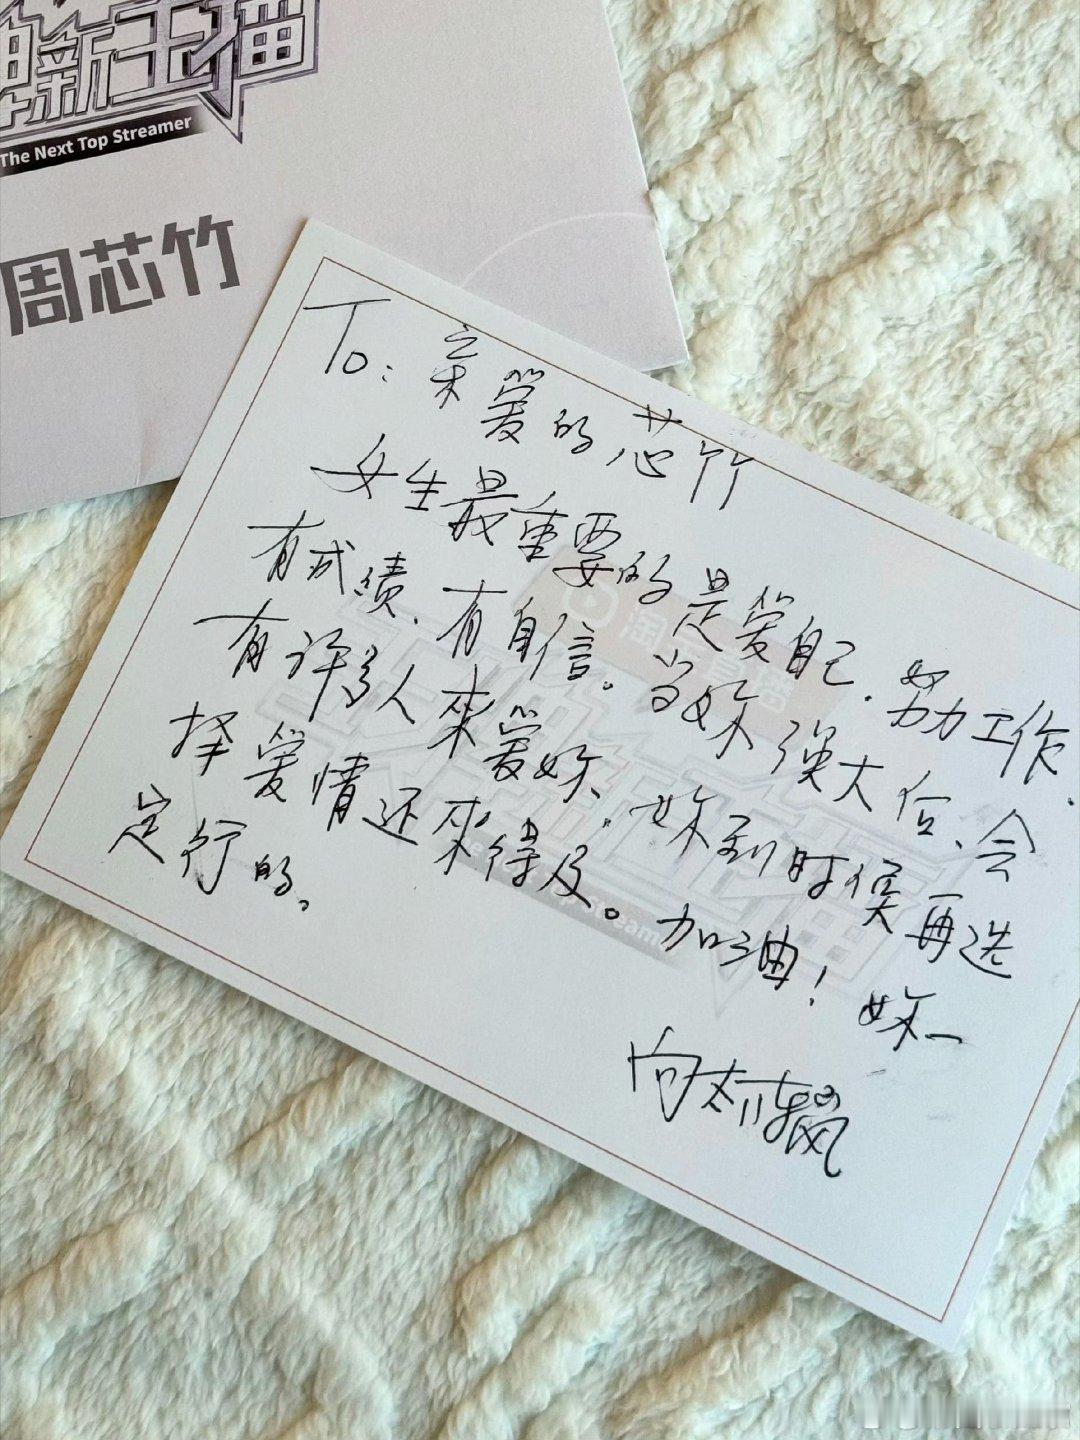 新主播
The Next Top Streamer
周芯竹
To: 亲爱的芯竹
女生最重要的是爱自己.努力工作.
有成绩.有自信。当妳强大后、会
有许多人來爱妳.妳到时候再选
择爱情还來得及。加油!妳一
定行的。
向太陈岚